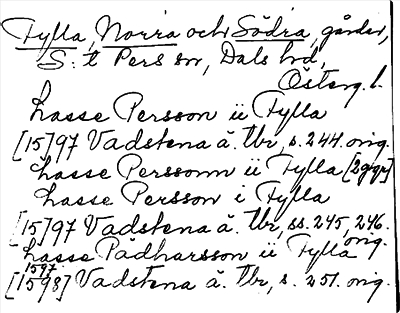 Fylla, Norra och Södra, gårdar,
S:t Pers sn, Dals hd,
Österg. l.
Lasse Persson ii Fylla
[15]97 Vadstena ä. tbr, s. 244. orig.
Lasse Personn ii Fylla [2ggr]
Lasse Persson i Fylla
[15]97 Vadstena ä. tbr, ss. 245, 246.
orig.
Lasse Pädharsson ii Fylla
1597
[1598] Vadstena ä. tbr, s. 251. orig.